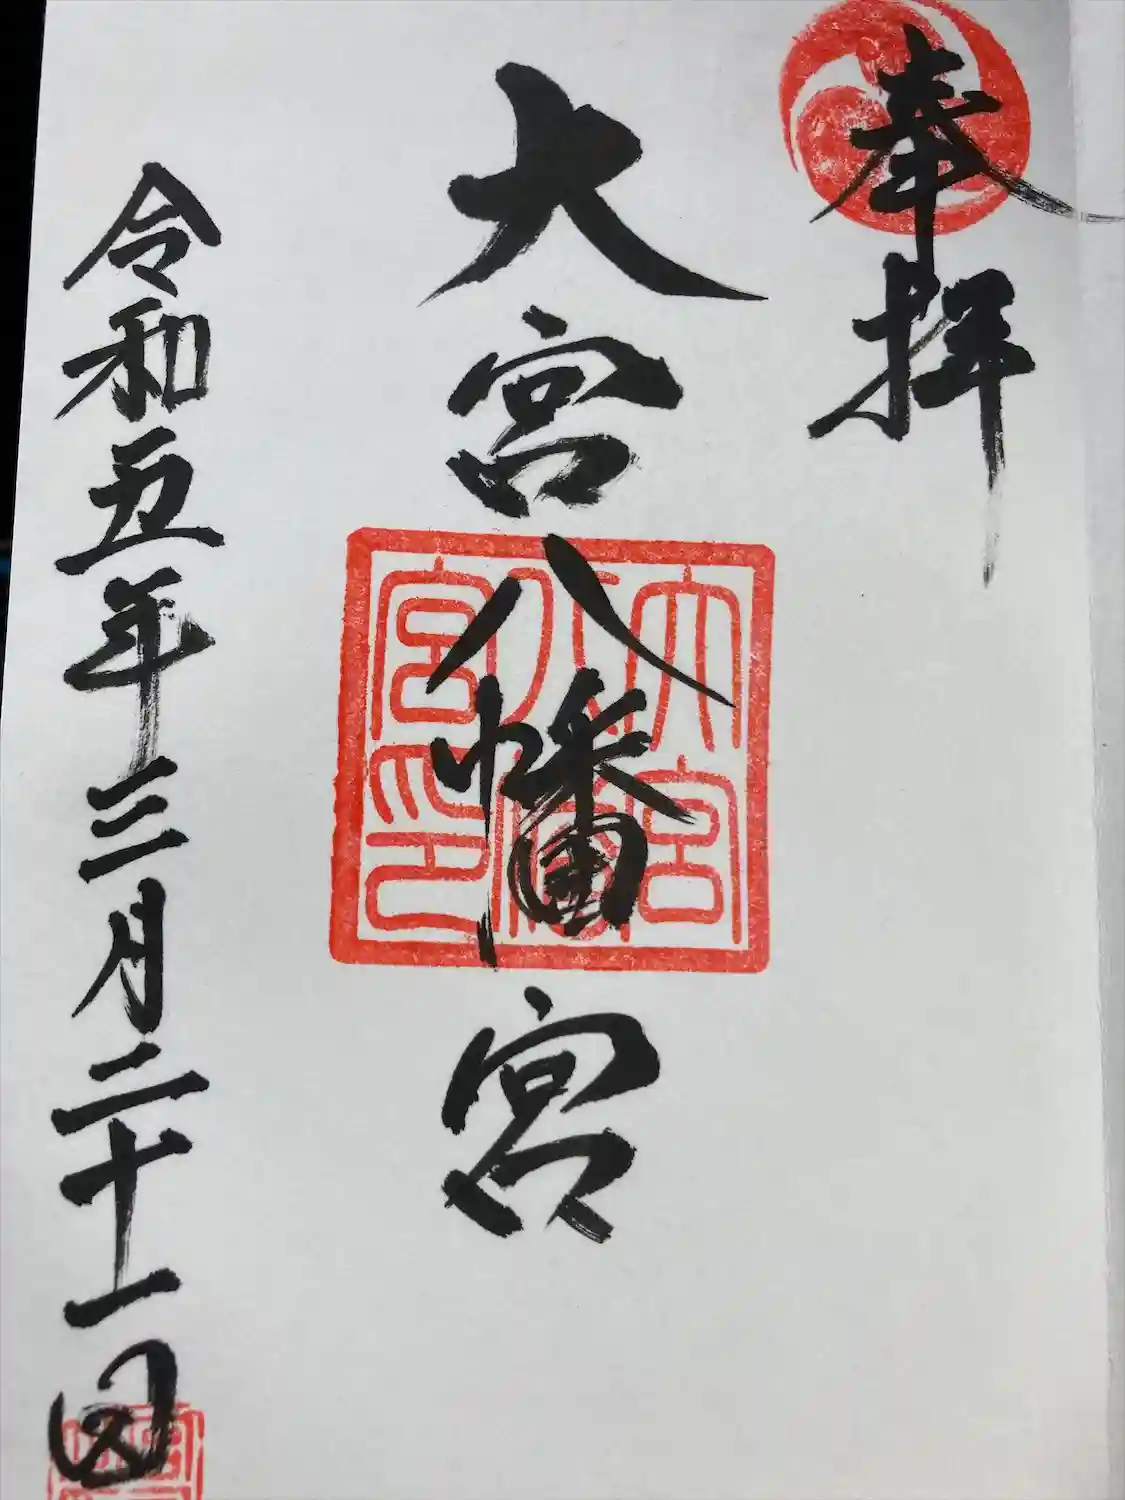 奉拝
大宮八幡宮
大宮八幡宮印
令和五年三月二十一日